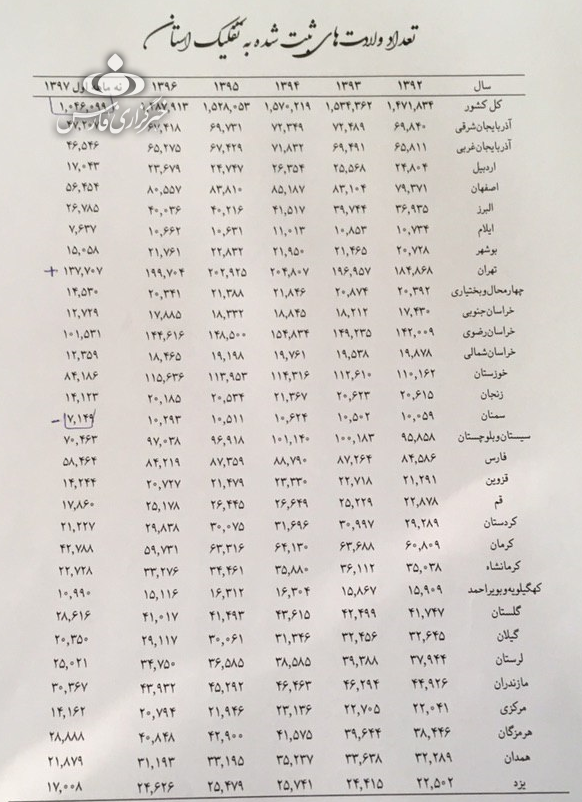 تعداد ولادت های ثبت شده به تفکیک استان
سال ۱۳۹۲ ۱۳۹۳ ۱۳۹۴ ۱۳۹۵ ۱۳۹۶ نه ماهه اول ۱۳۹۷
کل کشور ۱,۴۷۱,۸۳۴ ۱,۵۳۴,۳۶۲ ۱,۵۷۰,۲۱۹ ۱,۵۲۸,۰۵۳ ۱,۴۸۷,۹۱۳ ۱,۰۴۶,۰۹۹
خبرگزاری فارس
آذربایجان‌شرقی ۶۹,۸۴۰ ۷۲,۴۸۹ ۷۲,۳۴۹ ۶۹,۷۳۱
آذربایجان‌غربی ۶۵,۸۱۱ ۶۹,۴۹۱ ۷۱,۸۳۲ ۶۷,۴۲۹ ۶۵,۲۷۵ ۴۶,۵۴۶
اردبیل ۲۴,۸۰۴ ۲۵,۵۶۸ ۲۶,۳۵۴ ۲۴,۷۴۷ ۲۳,۶۷۹ ۱۷,۰۴۳
اصفهان ۷۹,۳۷۱ ۸۳,۱۰۴ ۸۵,۱۸۷ ۸۳,۸۱۰ ۸۰,۵۵۷ ۵۶,۴۵۴
البرز ۳۶,۹۳۵ ۳۹,۷۴۴ ۴۱,۵۱۷ ۴۰,۲۱۶ ۴۰,۰۳۶ ۲۶,۷۸۵
ایلام ۱۰,۷۳۴ ۱۰,۸۵۳ ۱۱,۰۱۳ ۱۰,۶۳۱ ۱۰,۶۶۲ ۷,۶۳۷
بوشهر ۲۰,۷۲۸ ۲۱,۴۶۵ ۲۱,۹۵۰ ۲۲,۸۳۲ ۲۱,۷۶۱ ۱۵,۰۵۸
تهران ۱۸۴,۸۶۸ ۱۹۶,۹۵۷ ۲۰۴,۸۰۷ ۲۰۲,۹۲۵ ۱۹۹,۷۰۴ ۱۳۷,۷۰۷ +
چهارمحال‌وبختیاری ۲۰,۳۹۲ ۲۰,۸۷۴ ۲۱,۸۴۶ ۲۱,۳۸۸ ۲۰,۳۴۱ ۱۴,۵۳۰
خراسان‌جنوبی ۱۷,۴۳۰ ۱۸,۲۱۲ ۱۸,۸۴۵ ۱۸,۳۳۲ ۱۷,۸۸۵ ۱۲,۷۲۹
خراسان‌رضوی ۱۴۲,۰۰۹ ۱۴۹,۲۳۵ ۱۵۴,۸۳۴ ۱۴۸,۵۰۰ ۱۴۴,۶۱۶ ۱۰۱,۵۳۱
خراسان‌شمالی ۱۹,۸۷۸ ۱۹,۵۳۸ ۱۹,۷۶۱ ۱۹,۱۹۸ ۱۸,۴۶۵ ۱۲,۳۵۹
خوزستان ۱۱۰,۱۶۲ ۱۱۲,۶۱۰ ۱۱۴,۳۱۶ ۱۱۳,۹۵۳ ۱۱۵,۶۳۶ ۸۴,۱۸۶
زنجان ۲۰,۶۱۵ ۲۰,۶۲۳ ۲۱,۳۶۷ ۲۰,۵۳۴ ۲۰,۱۸۵ ۱۴,۱۲۳
سمنان ۱۰,۰۵۹ ۱۰,۵۰۲ ۱۰,۶۲۴ ۱۰,۵۱۱ ۱۰,۲۹۳ ۷,۱۴۹ -
سیستان‌وبلوچستان ۹۵,۸۵۸ ۱۰۰,۱۸۳ ۱۰۱,۱۴۰ ۹۶,۹۱۸ ۹۷,۰۳۸ ۷۰,۴۶۳
فارس ۸۴,۵۸۶ ۸۷,۲۶۴ ۸۸,۷۹۰ ۸۷,۳۵۹ ۸۴,۲۱۹ ۵۸,۴۶۴
قزوین ۲۱,۲۹۱ ۲۲,۷۱۸ ۲۳,۳۳۰ ۲۱,۴۷۹ ۲۰,۷۲۷ ۱۴,۲۴۴
قم ۲۲,۸۷۸ ۲۵,۲۲۹ ۲۶,۶۴۹ ۲۶,۴۴۵ ۲۵,۱۷۸ ۱۷,۸۶۰
کردستان ۲۹,۲۸۹ ۳۰,۹۹۷ ۳۱,۶۹۶ ۳۰,۰۷۵ ۲۹,۸۳۸ ۲۱,۲۲۷
کرمان ۶۰,۸۰۹ ۶۳,۶۸۸ ۶۴,۱۳۰ ۶۳,۳۱۶ ۵۹,۷۳۱ ۴۲,۷۸۸
کرمانشاه ۳۵,۰۳۸ ۳۶,۱۱۲ ۳۵,۸۸۰ ۳۴,۴۶۱ ۳۳,۲۷۶ ۲۲,۷۲۸
کهگیلویه‌وبویراحمد ۱۵,۹۰۹ ۱۵,۸۶۷ ۱۶,۳۰۴ ۱۶,۳۱۲ ۱۵,۱۱۶ ۱۰,۹۹۰
گلستان ۴۱,۷۴۷ ۴۲,۴۹۹ ۴۳,۶۱۵ ۴۱,۴۹۳ ۴۱,۰۱۷ ۲۸,۶۱۶
گیلان ۳۲,۶۴۵ ۳۲,۴۵۶ ۳۱,۳۴۶ ۳۰,۰۶۱ ۲۹,۱۱۷ ۲۰,۳۵۰
لرستان ۳۷,۹۴۴ ۳۹,۳۸۸ ۳۸,۵۸۵ ۳۶,۵۸۵ ۳۴,۷۵۰ ۲۵,۰۲۱
مازندران ۴۴,۹۲۶ ۴۶,۲۹۴ ۴۶,۴۶۳ ۴۵,۲۹۲ ۴۳,۹۳۲ ۳۰,۳۶۷
مرکزی ۲۲,۰۴۱ ۲۲,۷۰۵ ۲۳,۱۳۶ ۲۱,۹۴۶ ۲۰,۷۹۴ ۱۴,۱۶۲
هرمزگان ۳۸,۴۴۶ ۳۹,۶۴۴ ۴۱,۵۷۵ ۴۲,۹۰۰ ۴۰,۸۴۸ ۲۸,۸۸۸
همدان ۳۲,۲۸۹ ۳۳,۶۳۸ ۳۵,۲۳۷ ۳۳,۱۹۵ ۳۱,۱۹۳ ۲۱,۸۷۹
یزد ۲۲,۵۰۲ ۲۴,۴۱۵ ۲۵,۷۴۱ ۲۵,۴۷۹ ۲۴,۶۲۶ ۱۷,۰۰۸